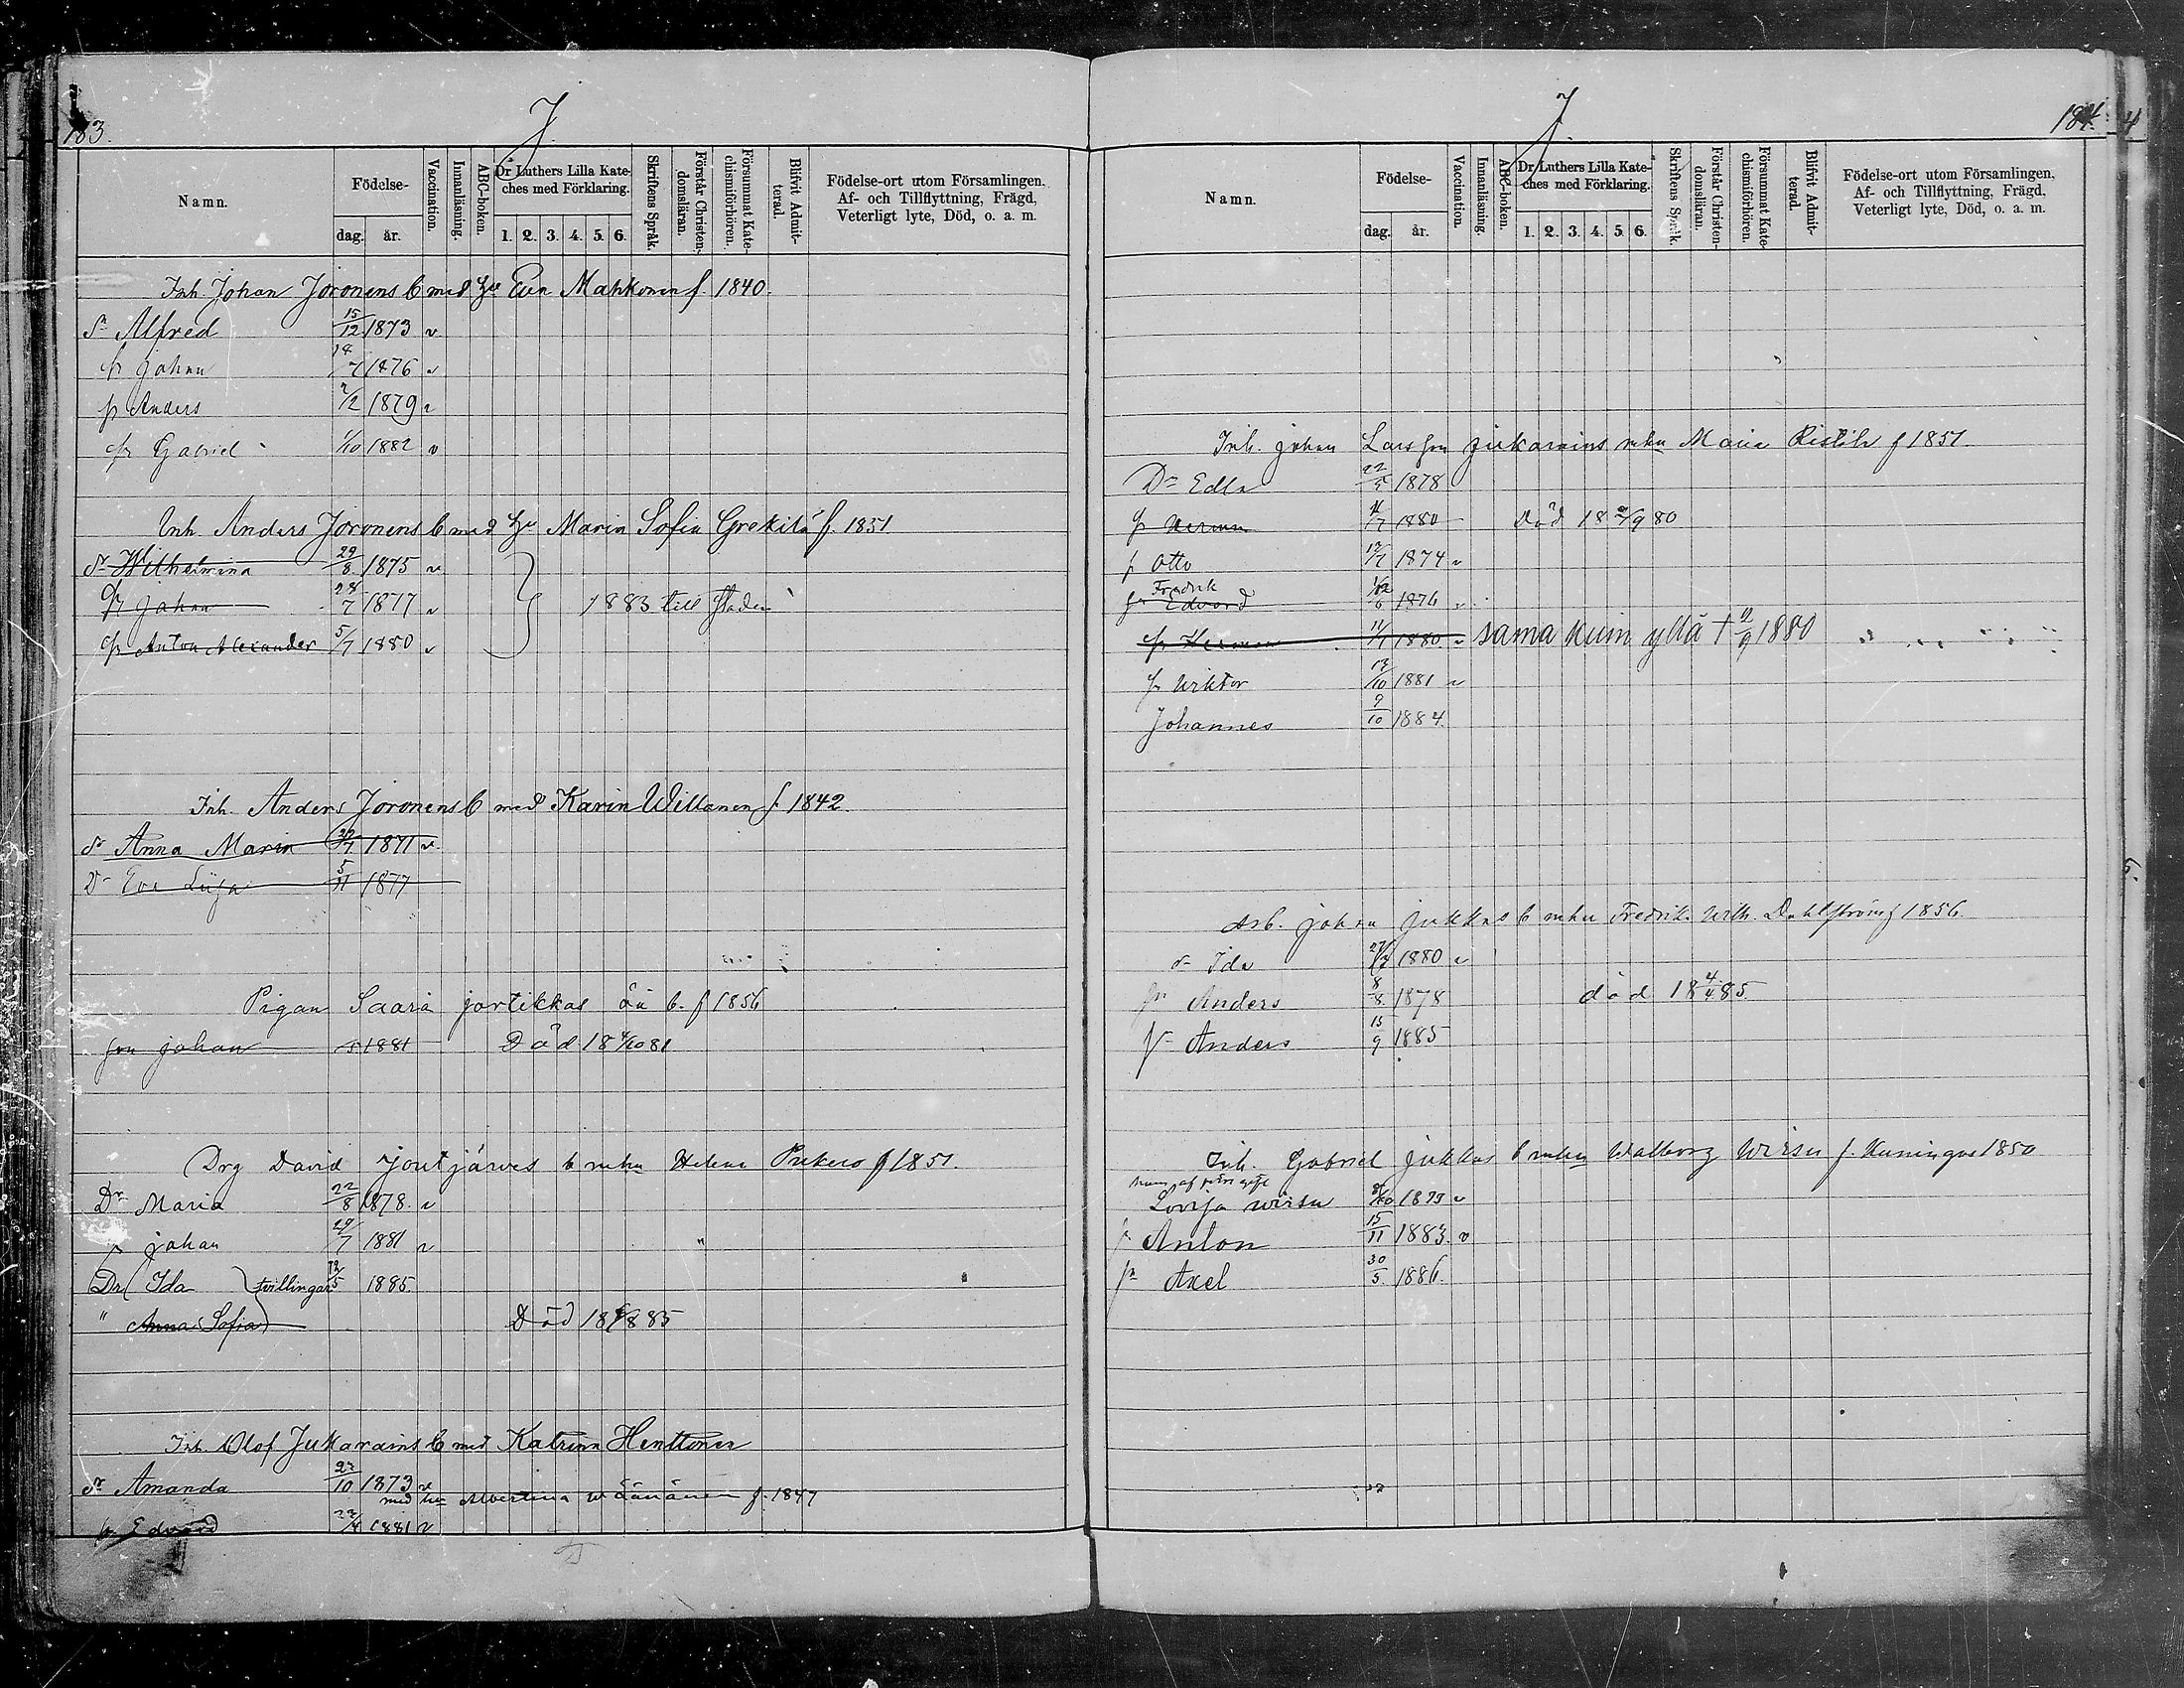 183.
J.
Namn.
Födelse-
dag.
år.
Vaccination.
Innanläsning.
ABC-boken.
Dr Luthers Lilla Kate-
ches med Förklaring.
1. 2. 3. 4. 5. 6.
Skriftens Språk.
Förstår Christen-
domsläran.
Försummat Kate-
chismiförhören.
Blifvit Admit-
terad.
Födelse-ort utom Församlingen.
Af- och Tillflyttning, Frägd,
Veterligt lyte, Död, o. a. m.
Inh. Johan Joronens b med hu Eva Mahkonen f. 1840.
Dr Alfred 15/12 1873 v
johan 14/7 1876 v
Anders 2/2 1879 v
Gabriel 1/10 1882 v
Inh. Anders Joronens b med hu Maria Sofia Grekilä f. 1851
Dr Wilhelmina 29/8 1875 v
johan 28/7 1877 v 1883 till staden
Anton Alexander 5/7 1880 v
Inh. Anders Joronens b med Karin Willanen f. 1842
Dr Anna Maria 27/7 1871 v
Dr Eva Liisa 5/11 1877
Pigan Saara jortikkas b. f 1856
son johan 1881 Död 18 4/10 81
Drg David joutjärves b mhu Helena f 1851.
Dr Maria 22/8 1878. v
johan 29/7 1881 v
Dr Ida tvillingar 1885.
" Anna Sofia Död 18 8 85
Inh. Olof Jukarains b med Katrina Henttonen
Dr Amanda 27/10 1873 v
med hu Albertina f. 1847
Edvard 1881 v
J.
184.
Namn.
Födelse-
dag.
år.
Vaccination.
Innanläsning.
ABC-boken.
Dr Luthers Lilla Kate-
ches med Förklaring.
1. 2. 3. 4. 5. 6.
Skriftens Språk.
Förstår Christen-
domsläran.
Försummat Kate-
chismiförhören.
Blifvit Admit-
terad.
Födelse-ort utom Församlingen,
Af- och Tillflyttning, Frägd,
Veterligt lyte, Död, o. a. m.
Inh. johan Larsson jukarains mhu Maria f 1851.
Dr Edla 1878
Herman 1880 Död 18 9 80
Otto 1874 v
Fredrik
Edvard 1876 v
Herman 11/7 1880 v sama kuin yllä † 1880
Wiktor 13/10 1881 v
Johannes 9/10 1884.
Arb. johan jukkas b mhu Fredrika Wilh. Dahlström f 1856.
Dr Ida 1880 v
Anders 8/8 1878 död 18 4/4 85
Anders 15/9 1885
Inh. Gabriel jukkas b mhu Walborg Wirsu f. Kuningas 1850
Lovisa wirsu 1879 v
Anton 15/11 1883. v
Axel 30/5 1886.